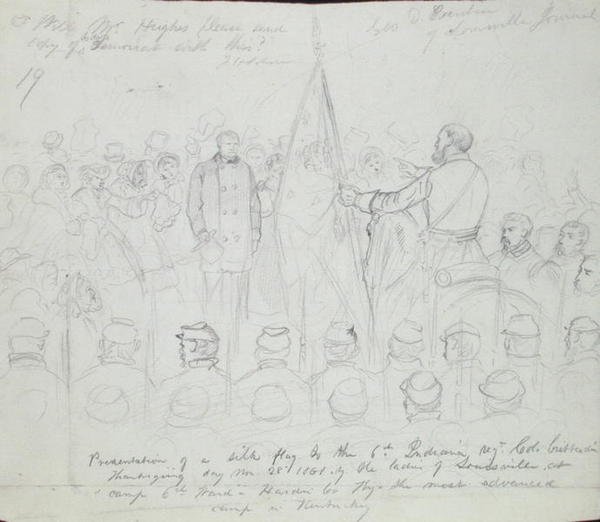 Will Mr Hughes please send
copy of with this?
19
Geo D.
of Louisville Journal
Presentation of a silk flag to the 6th Indiana regt. Col. Crittenden
Thanksgiving day Nov 28 1861. by the ladies of Louisville, at
camp Hardin Co Ky. the most advanced
camp in Kentucky